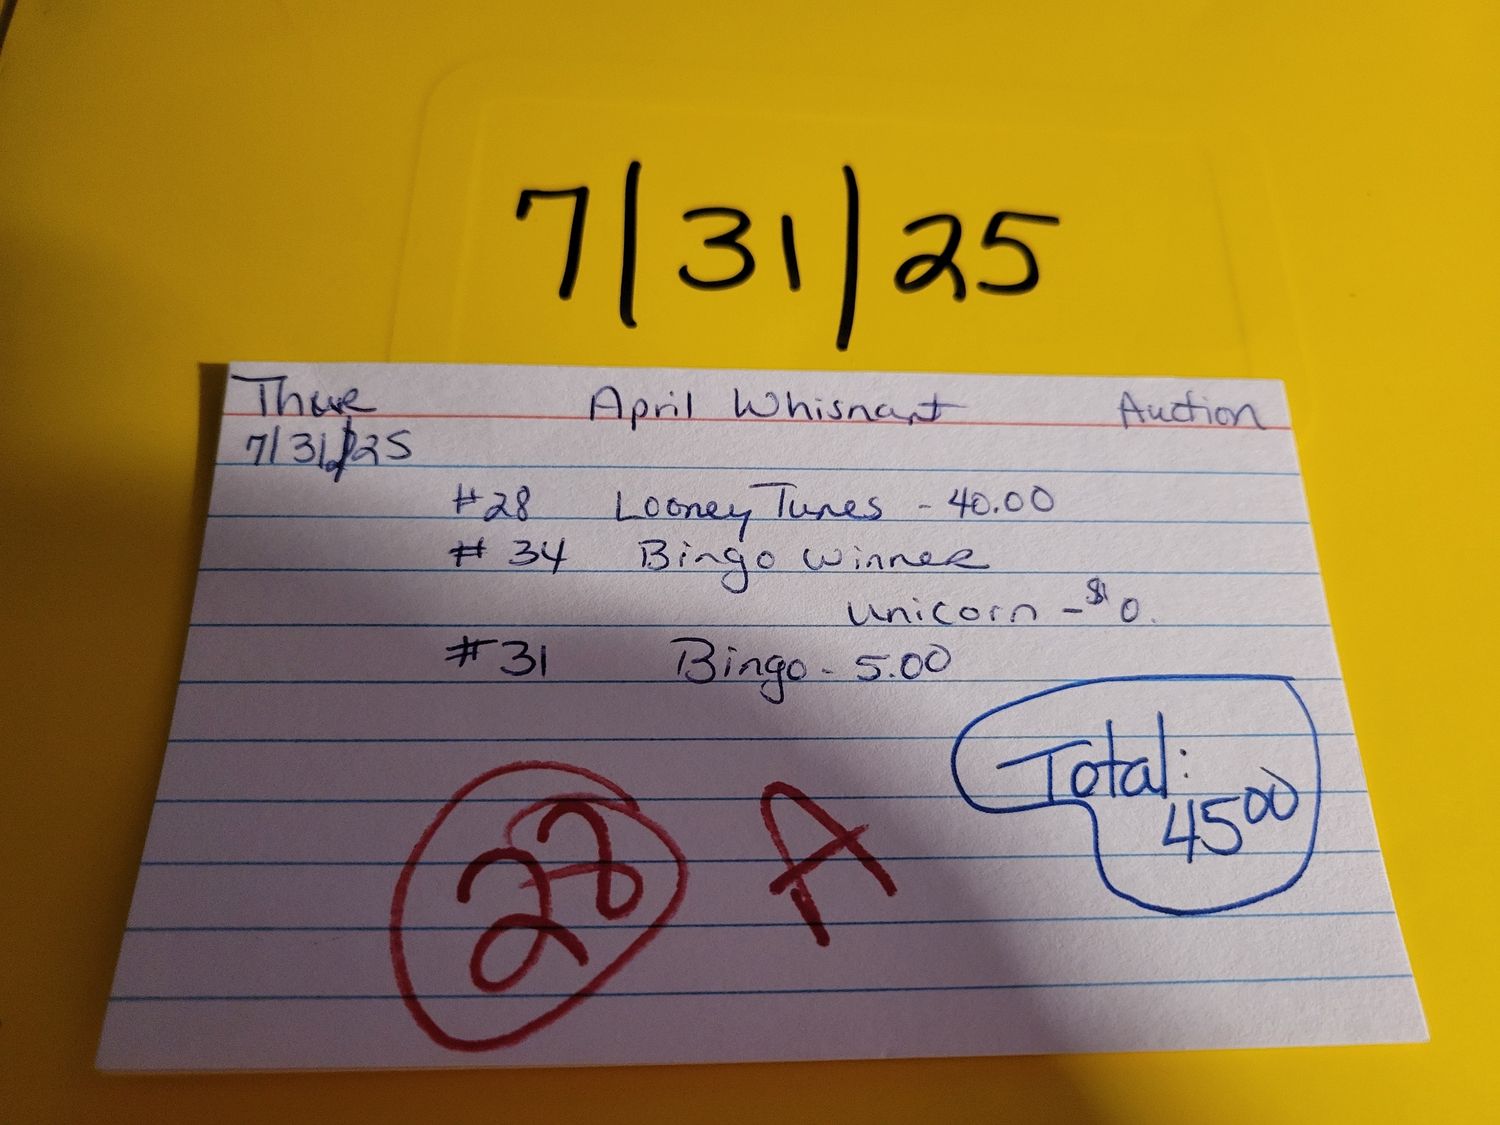 7/31/25
Thur April Whisnant Auction
7/31/25
#28 Looney Tunes - 40.00
# 34 Bingo Winner
unicorn - $0.
#31 Bingo - 5.00
Total:
45 00
28 A